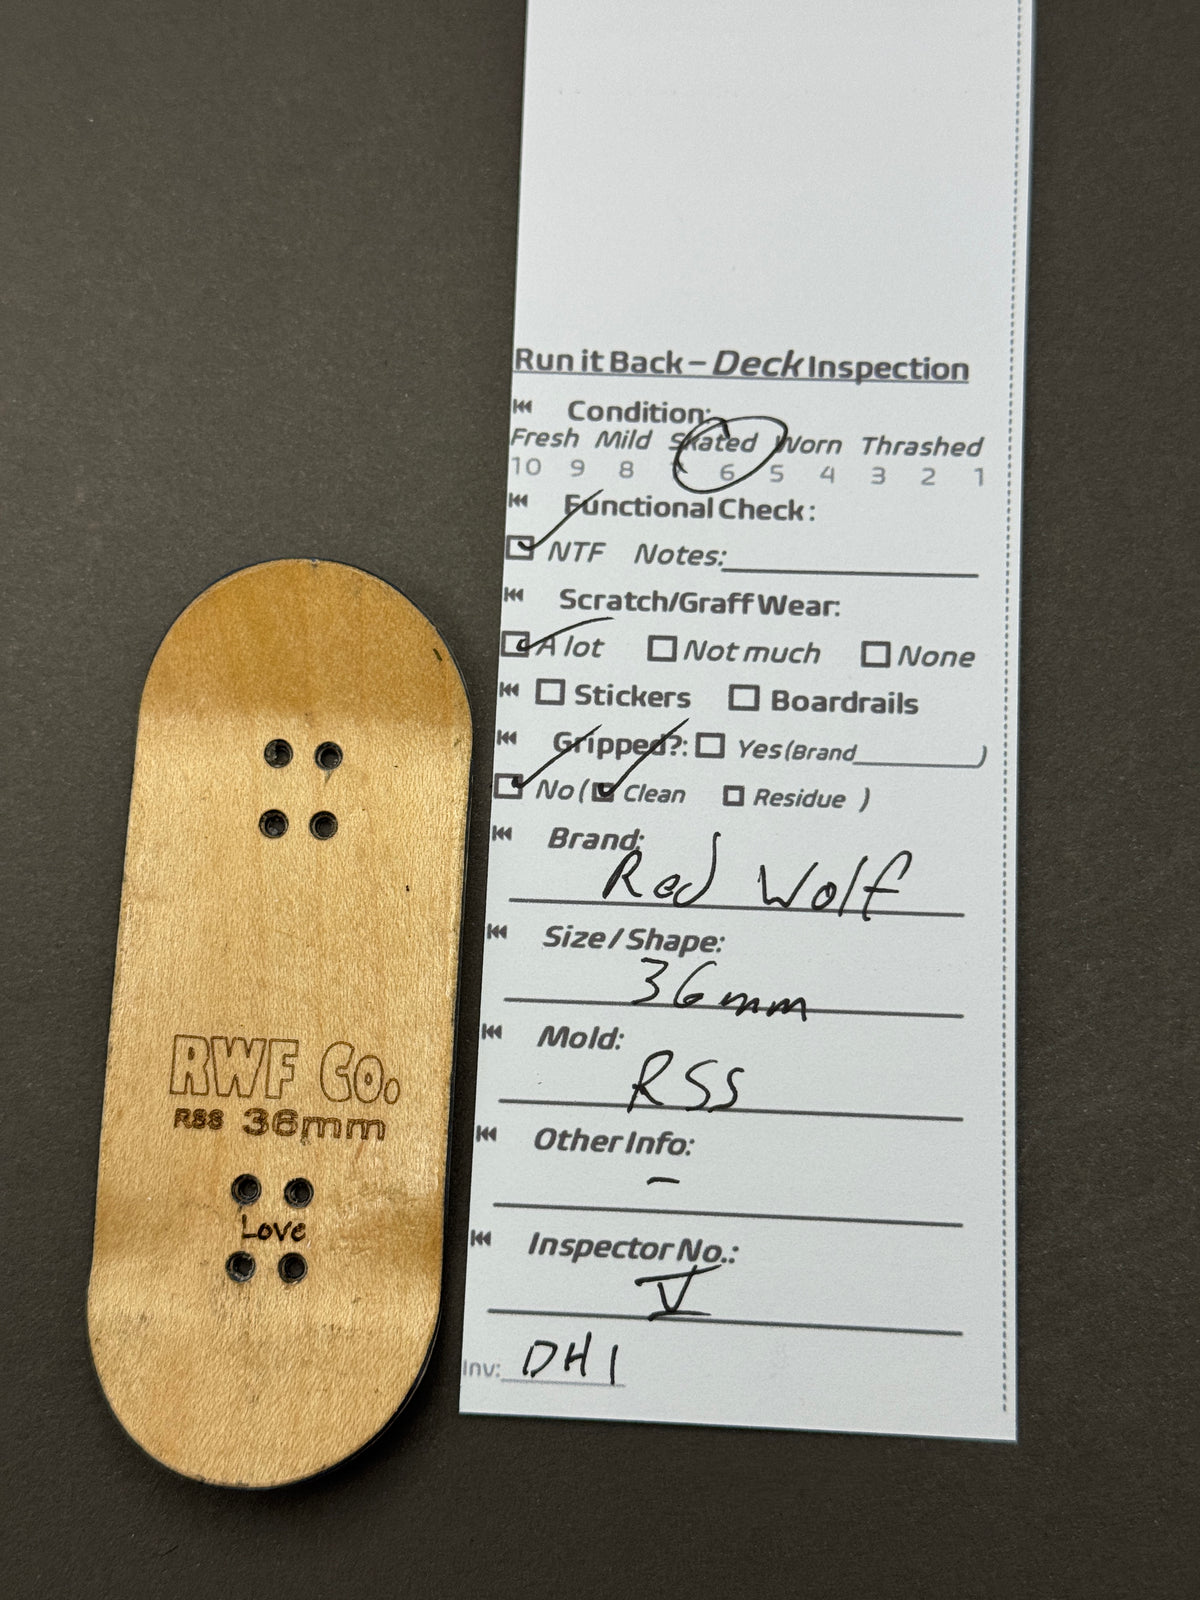 Run it Back – Deck Inspection
Condition:
Fresh Mild Skated Worn Thrashed
10 9 8 7 6 5 4 3 2 1
Functional Check:
NTF Notes:
Scratch/Graff Wear:
A lot Not much None
Stickers Boardrails
Gripped?: Yes (Brand )
No ( Clean Residue )
Brand:
Red Wolf
Size / Shape:
36mm
Mold:
RSS
Other Info:
–
Inspector No.:
V
Inv: DH1
RWF Co.
RSS 36mm
Love